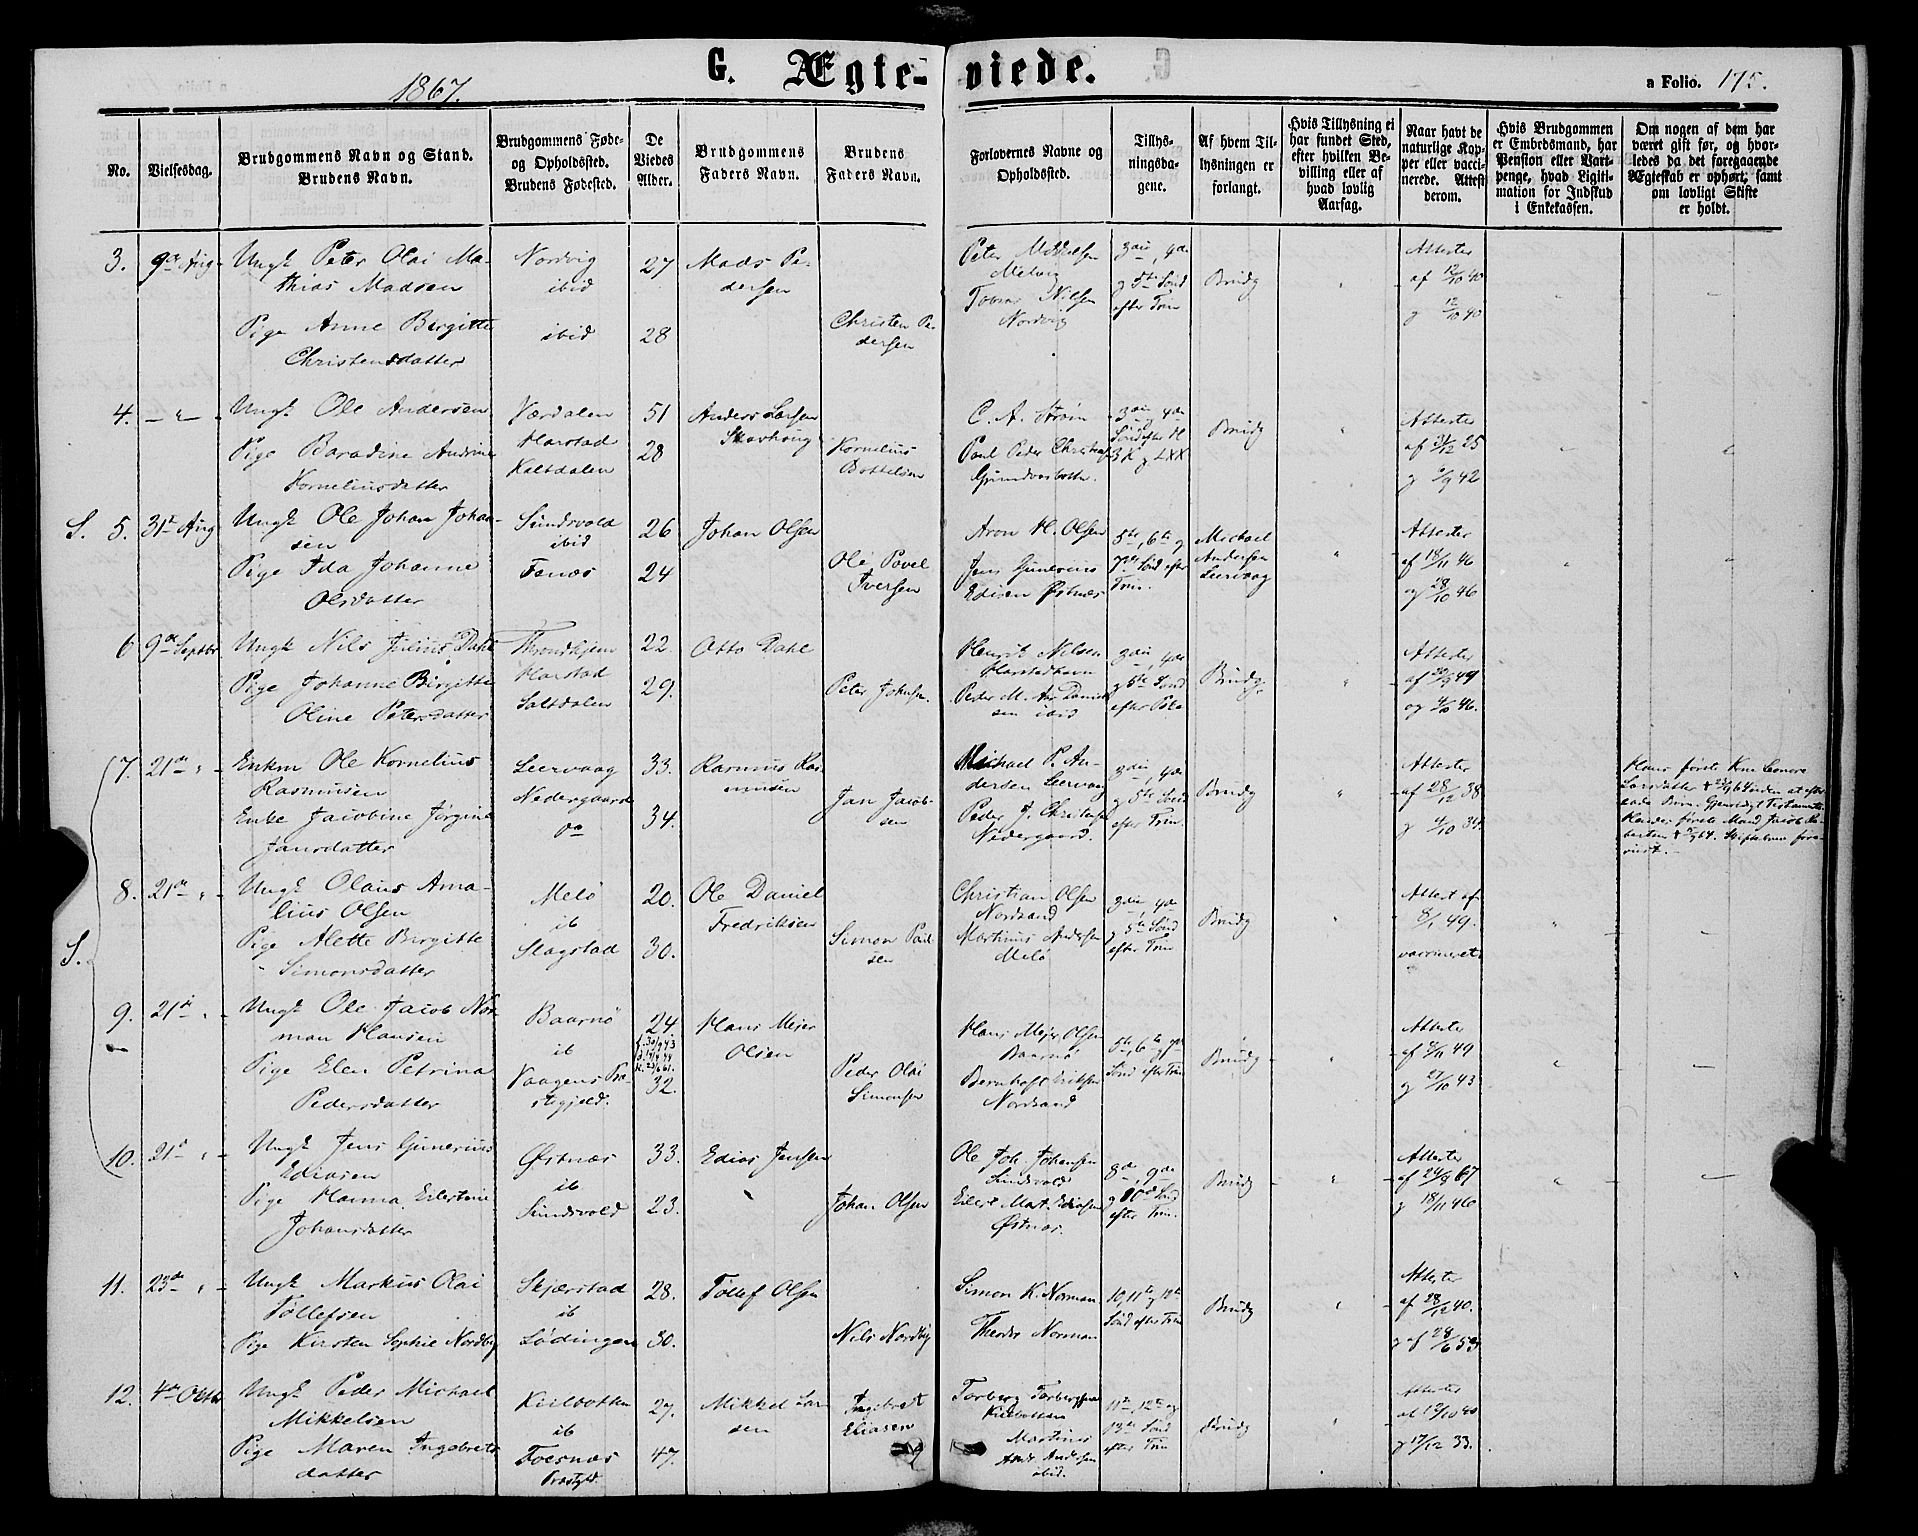 1867.
G. Ægte-viede.
a Folio. 175.
No.
Vielsesdag.
Brudgommens Navn og Stand.
Brudens Navn.
Brudgommens Føde-
og Opholdssted.
Brudens Fødested.
De
Viedes
Alder.
Brudgommens
Faders Navn.
Brudens
Faders Navn.
Forlovernes Navne og
Opholdssted.
Tillys-
ningsda-
gene.
Af hvem Til-
lysningen er
forlangt.
Hvis Tillysning ei
har fundet Sted,
efter hvilken Be-
villing eller af
hvad lovlig
Aarsag.
Naar havt de
naturlige Kop-
per eller vacci-
nerede. Attest
derom.
Hvis Brudgommen
er Embedsmand, har
Pension eller Vart-
penge, hvad Ligiti-
mation for Indskud
i Enkekassen.
Om nogen af dem har
været gift før, og hvor-
ledes da det foregaaende
Ægteskab er ophørt, samt
om lovligt Skifte
er holdt.
3. 9de Aug
Ungk Peter Olai Ma-
thias Madsen
Pige Anne Birgitte
Christensdatter
Nordvig
ibid
ibid
27
28
Mads Pe-
dersen
Christen Pe-
dersen
Peter Mikkelsen
Melvig
Tobias Nilsen
Nordvig
3die, 4de
g 5te Sønd
efter Trin
Brudg
Attester
af 12/10 40
g 12/10 40
4. — " —
Ungk Ole Andersen
Pige Baradine Andrine
Korneliusdatter
Værdalen
Harstad
Kaldalen
51
28
Anders Larsen
Skavhoug
Kornelius
Bottelsen
C. A. Strøm
Paul Peder Christens
3die, 4de
Brudg
Attester
af 31/12 25
g 42
S. 5. 31te Aug
Ungk Ole Johan Johan-
sen
Pige Ida Johanne
Olsdatter
Sundsvold
ibid
Fanæs
26
24
Johan Olsen
Ole Povel
Iversen
Aron H. Olsen
Jens Gunerius
Edisen Østnæs
5te, 6te g
7de Sønd efter
Trin.
Michael
Andersen
Leervaag
Attester
af 18/11 46
og 28/10 46
6 9de Septbr.
Ungk Nils Julius Dahl
Pige Johanne Birgitte
Oline Petersdatter
Throndhjem
Harstad
Saltdalen
22.
29.
Otto Dahl
Peter Johnsen
Henrik Nilsen
Harstadhavn
Peder M. Daniel-
sen ibid
3die, 4de
g 5te Sønd
efter
Brudg.
Attester
af 49
og 46.
7. 21de " -
Enkm Ole Kornelius
Rasmusen
Enke Jacobine Jørgine
Jansdatter
Leervaag
Nedergaard
do
33.
34.
Rasmus Ras-
musen
Jan Jacob-
sen
Michael P. An-
dersen Leervaag
Peder J. Christensen
Nedergaard.
3die, 4de
g 5te Sønd
efter Trin.
Brudg
Attester
af 28/12 38
g 4/10 34.
Hans første Kone Lenora
Larsdatter
Børn. Gjensidigt Testamente
Hendes første Mand Jacob Ro-
bertsen
8. 21de " -
Ungk Olaus Ama-
lius Olsen
Pige Alette Birgitte
Simonsdatter
S.
Melø
ib
Slagstad
20.
30.
Ole Daniel
Fredriksen
Simon Paul-
sen
Christian Olsen
Nordsand
Martinus Andersen
Melø
3die, 4de
g 5te Sønd
efter Trin
Brudg
Attest af
8/1 49.
vaccineret
9. 21de " -
Ungk Ole Jacob Nor-
man Hansen
Pige Elen Petrina
Pedersdatter
Baarnø
ib
Vaagens Præ-
stegjeld.
24.
32.
Hans Mejer
Olsen
Peder Olai
Simonsen
Hans Mejer Olsen
Baarnø
Bernhoft Eriksen
Nordsand
5te, 6te g 7de
Sønd efter Trin
Brudg
Attester
af 8/11 49
g 21/10 43
10. 21de " -
Ungk Jens Gunerius
Ediasen
Pige Hanna Eilertine
Johansdatter
Østnæs
ib
Sundsvold
33.
23.
Edias Jensen
Johan Olsen
Ole Joh. Johansen
Sundsvold
Eilert Mart. Ediasen
Østnæs
8de, 9de
g 10de Sønd
efter Trin.
Brudg
Attester
af 24/8 67
g 18/11 46
11. 23de " -
Ungk Markus Olai
Tollefsen
Pige Kirsten Sophie Nordby
Skjærstad
ib
Lødingen
28.
30.
Tollef Olsen
Nils Nordby
Simon K. Norman
Theodor Norman
10, 11te g 12te
Sønd efter Trin
Brudg
Attester
af 28/12 40.
g af 28/6 53
12. 4de Octbr
Ungk Peder Michael
Mikkelsen
Pige Maren Ingebrets
datter
Kiilbotten
ib
Foesnæs
Præstgld.
27.
47.
Mikkel Lar-
sen
Ingebret
Eliasen
Torberg Torbergsen
Kiilbotten
Martinus
Andr. Andersen
ibid.
11te, 12te og
13de Sønd
efter Trin
Brudg
Attester
af 40
g 17/12 33.